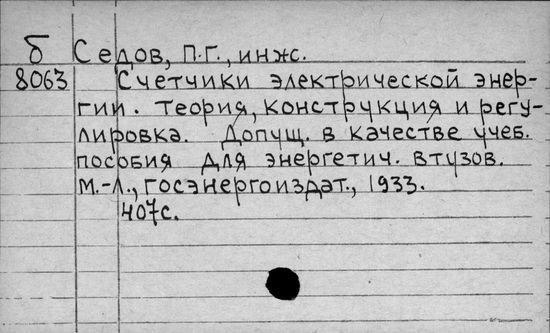 б Седов, П.Г., инж.
8063 Счетчики электрической энер-
гии. Теория, конструкция и регу-
лировка. Допущ. в качестве учеб.
пособия для энергетич. втузов.
М.-Л., Госэнергоиздат., 1933.
407с.